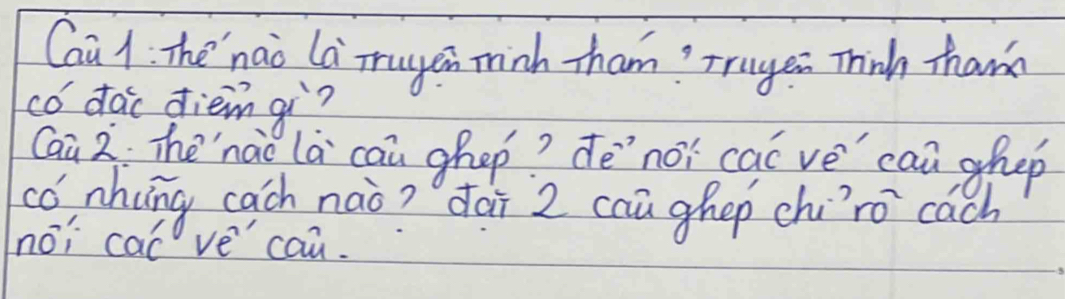 Câu 1: Thế nào là truyện trinh thám? Truyện Trinh thám
có đặc điểm gì?
Câu 2: Thế nào là câu ghép? để nối các vế câu ghép
có những cách nào? đặt 2 câu ghép chỉ rõ cách
nối các vế câu.